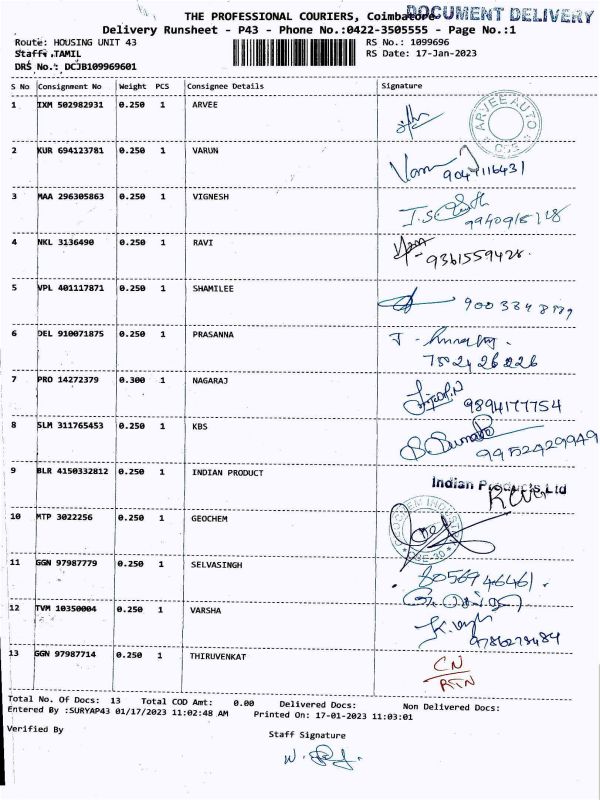 THE PROFESSIONAL COURIERS, Coimbatore
DOCUMENT DELIVERY
Delivery Runsheet - P43 - Phone No.:0422-3505555 - Page No.:1
Route: HOUSING UNIT 43 RS No.: 1099696
Staff: TAMIL RS Date: 17-Jan-2023
DRS No.: DCJB109969601
S No Consignment No Weight PCS Consignee Details Signature
1 IXM 502982931 0.250 1 ARVEE
ARVEE AUTO
2 KUR 694123781 0.250 1 VARUN
3 MAA 296305863 0.250 1 VIGNESH
4 NKL 3136490 0.250 1 RAVI
9361559428.
5 VPL 401117871 0.250 1 SHAMILEE
6 DEL 910071875 0.250 1 PRASANNA
7 PRO 14272379 0.300 1 NAGARAJ
9894177754
8 SLM 311765453 0.250 1 KBS
9952929949
9 BLR 4150332812 0.250 1 INDIAN PRODUCT
Indian Products Ltd
10 MTP 3022256 0.250 1 GEOCHEM
11 GGN 97987779 0.250 1 SELVASINGH
8056946461.
12 TVM 10350004 0.250 1 VARSHA
9786278484
13 GGN 97987714 0.250 1 THIRUVENKAT
CN
RTN
Total No. Of Docs: 13 Total COD Amt: 0.00 Delivered Docs: Non Delivered Docs:
Entered By :SURYAP43 01/17/2023 11:02:48 AM Printed On: 17-01-2023 11:03:01
Verified By Staff Signature